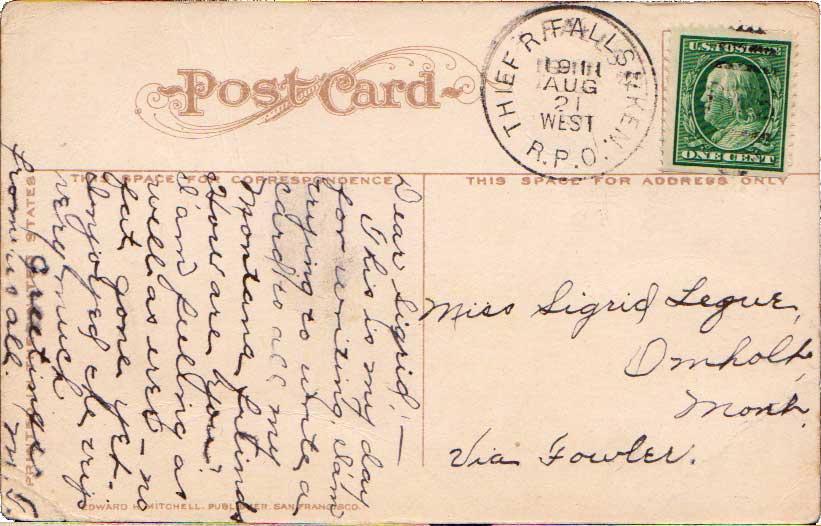 Post Card
THIEF R. FALLS & KEN.
1911
AUG
21
WEST
R.P.O.
U.S. POSTAGE
ONE CENT
THIS SPACE FOR CORRESPONDENCE
THIS SPACE FOR ADDRESS ONLY
Dear Sigrid! —
This is my day
for writing. I am
trying to write a
card to all my
Montana friends
How are you?
I am feeling as
well as ever – no
fat gone yet.
Enjoyed the trip
very much
Greetings
from us all. M. S.
Miss Sigrid Legue,
Omholt,
Mont.
Via Fowler.
EDWARD H. MITCHELL, PUBLISHER, SAN FRANCISCO.
PRINTED STATES